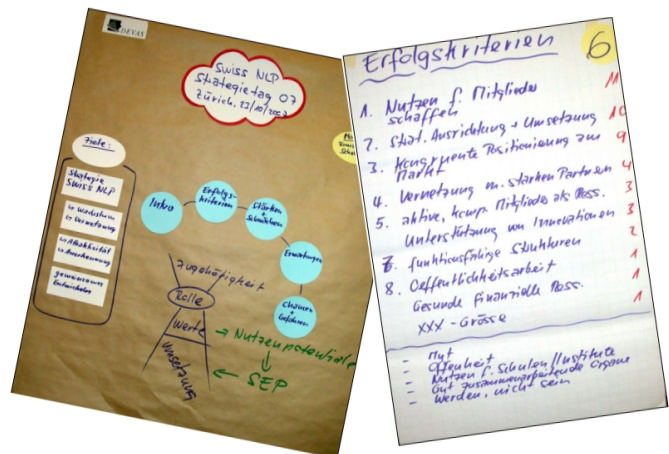 DEVAS
Swiss NLP
Strategietag 07
Zürich, 23/10/2007
Ziele:
Strategie
SWISS NLP
→ Wachstum
→ Vernetzung
→ Attraktivität
→ Anerkennung
gemeinsames
Intro
Erfolgs-
kriterien
Stärken
+
Schwächen
Erwartungen
Chancen
+
Gefahren
Zugehörigkeit
Rolle
Werte
→ Nutzenpotentiale
Umsetzung
← SEP
Erfolgskriterien
6
1. Nutzen f. Mitglieder
schaffen 11
2. Strat. Ausrichtung + Umsetzung 10
3. Kongruente Positionierung am
Markt 9
4. Vernetzung m. starken Partnern 4
5. aktive, komp. Mitglieder als Bass. 3
Unterstützung von Innovationen 3
7. funktionsfähige Strukturen 2
8. Oeffentlichkeitsarbeit 1
Gesunde finanzielle Bass. 1
XXX - Grösse 1
- Mut
- Offenheit
- Nutzen f. Schulen / Institute
- Gut zusammenarbeitende Organe
- werden, nicht sein